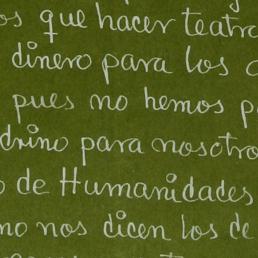 os que hacer teatro
dinero para los
pues no hemos p
drino para nosotro
o de Humanidades
no nos dicen los de